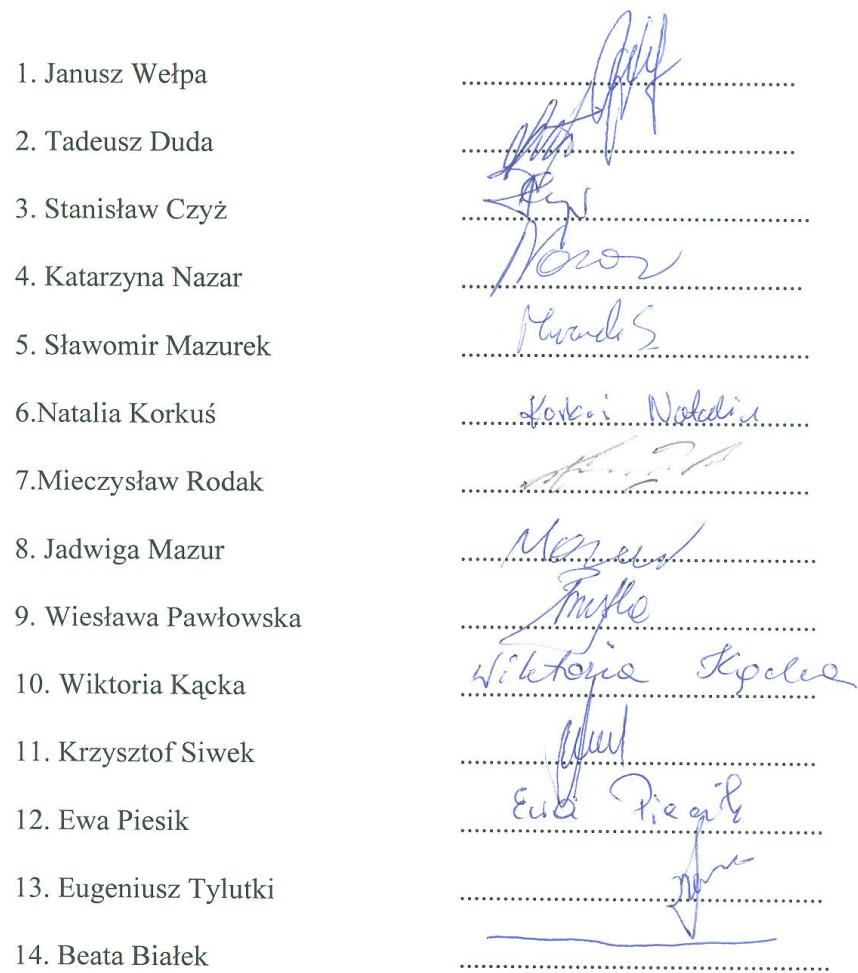 1. Janusz Wełpa
2. Tadeusz Duda
3. Stanisław Czyż
4. Katarzyna Nazar
5. Sławomir Mazurek
6.Natalia Korkuś Korkuś Natalia
7.Mieczysław Rodak
8. Jadwiga Mazur Mazur
9. Wiesława Pawłowska
10. Wiktoria Kącka Wiktoria Kącka
11. Krzysztof Siwek
12. Ewa Piesik Ewa Piesik
13. Eugeniusz Tylutki
14. Beata Białek